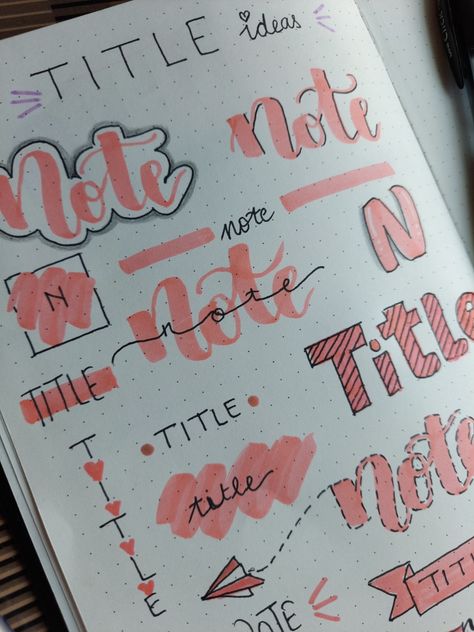 TITLE ideas
note
note
note
N
N
note
note
Title
TITLE
TITLE
TITLE
title
note
TITL
NOTE